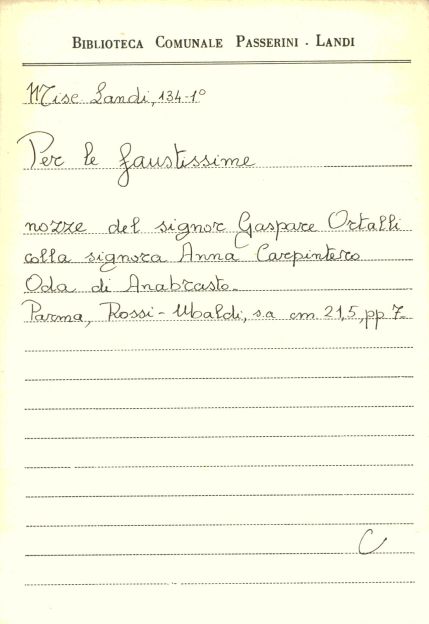 BIBLIOTECA COMUNALE PASSERINI - LANDI
Misc Landi, 134-1°
Per le faustissime
nozze del signor Gaspare Ortalli
colla signora Anna Carpintero
Oda di Anabrasto.
Parma, Rossi-Ubaldi, s.a cm 21,5, pp 7.
C